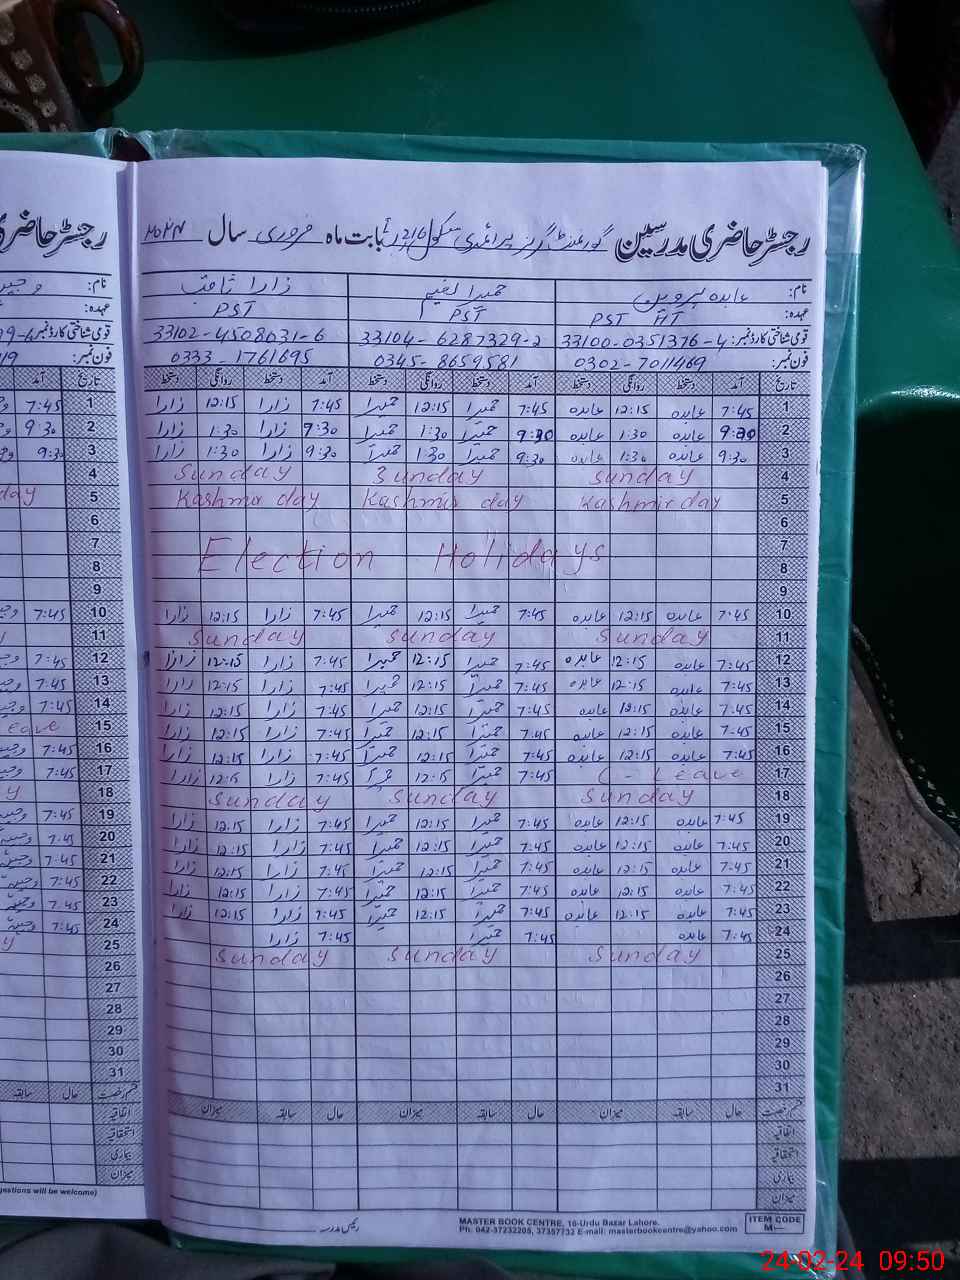 رجسٹر حاضری مدرسین گورنمنٹ گرلز پرائمری سکول 216 ر ب بابت ماہ فروری سال ۲۰۲۴
نام: عابدہ پروین حمیرا نعیم زارا ثاقب
عہدہ: PST HT PST PST
قومی شناختی کارڈ نمبر: 33100-0351376-4 33104-6287329-2 33102-4508031-6
فون نمبر: 0302-7011469 0345-8659581 0333-1761695
تاریخ آمد دستخط روانگی دستخط آمد دستخط روانگی دستخط آمد دستخط روانگی دستخط
1 7:45 عابدہ 12:15 عابدہ 7:45 حمیرا 12:15 حمیرا 7:45 زارا 12:15 زارا
2 9:30 عابدہ 1:30 عابدہ 9:30 حمیرا 1:30 حمیرا 9:30 زارا 1:30 زارا
3 9:30 عابدہ 1:30 عابدہ 9:30 حمیرا 1:30 حمیرا 9:30 زارا 1:30 زارا
4 Sunday Sunday Sunday
5 Kashmir day Kashmir day Kashmir day
6
7
Election Holidays
8
9
10 7:45 عابدہ 12:15 عابدہ 7:45 حمیرا 12:15 حمیرا 7:45 زارا 12:15 زارا
11 Sunday Sunday Sunday
12 7:45 عابدہ 12:15 عابدہ 7:45 حمیرا 12:15 حمیرا 7:45 زارا 12:15 زارا
13 7:45 عابدہ 12:15 عابدہ 7:45 حمیرا 12:15 حمیرا 7:45 زارا 12:15 زارا
14 7:45 عابدہ 12:15 عابدہ 7:45 حمیرا 12:15 حمیرا 7:45 زارا 12:15 زارا
15 7:45 عابدہ 12:15 عابدہ 7:45 حمیرا 12:15 حمیرا 7:45 زارا 12:15 زارا
16 7:45 عابدہ 12:15 عابدہ 7:45 حمیرا 12:15 حمیرا 7:45 زارا 12:15 زارا
17 C - Leave 7:45 حمیرا 12:15 حمیرا 7:45 زارا 12:15 زارا
18 Sunday Sunday Sunday
19 7:45 عابدہ 12:15 عابدہ 7:45 حمیرا 12:15 حمیرا 7:45 زارا 12:15 زارا
20 7:45 عابدہ 12:15 عابدہ 7:45 حمیرا 12:15 حمیرا 7:45 زارا 12:15 زارا
21 7:45 عابدہ 12:15 عابدہ 7:45 حمیرا 12:15 حمیرا 7:45 زارا 12:15 زارا
22 7:45 عابدہ 12:15 عابدہ 7:45 حمیرا 12:15 حمیرا 7:45 زارا 12:15 زارا
23 7:45 عابدہ 12:15 عابدہ 7:45 حمیرا 12:15 حمیرا 7:45 زارا 12:15 زارا
24 7:45 عابدہ 7:45 حمیرا 7:45 زارا
25 Sunday Sunday Sunday
26
27
28
29
30
31
قسم رخصت حال سابقہ میزان حال سابقہ میزان حال سابقہ میزان
اتفاقیہ
استحقاقیہ
بیماری
میزان
رئیس مدرسہ
MASTER BOOK CENTRE, 16-Urdu Bazar Lahore.
Ph: 042-37232205, 37357732 E-mail: masterbookcentre@yahoo.com
ITEM CODE
M—
24-02-24 09:50